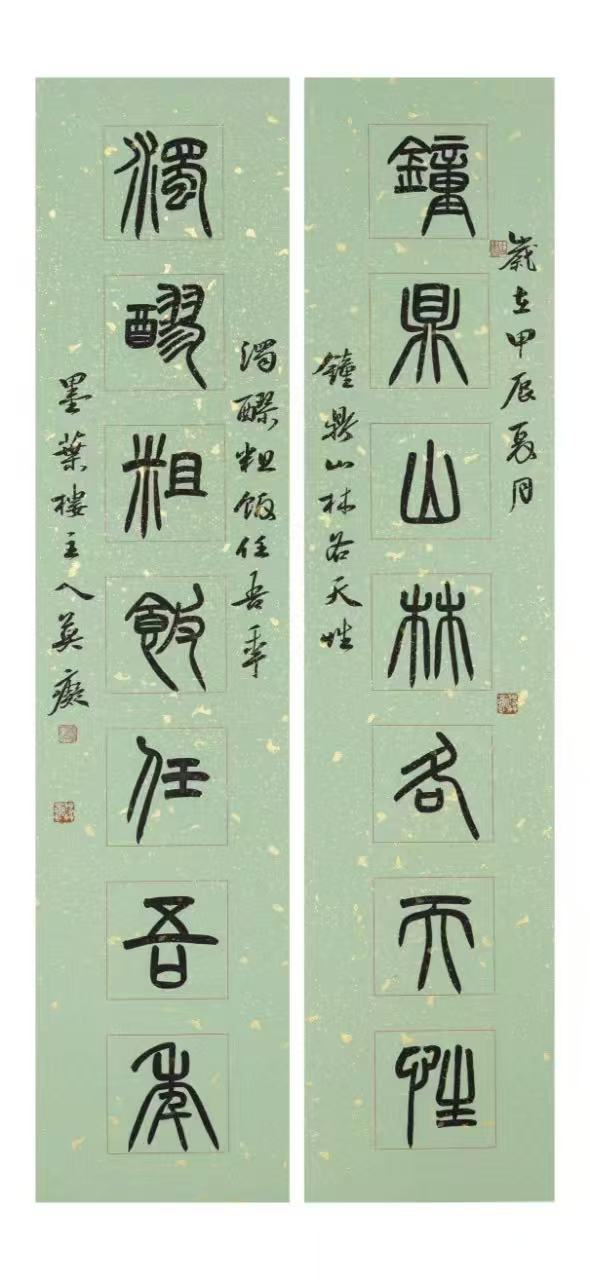 歲在甲辰夏月
鐘鼎山林各天性
鐘鼎山林各天性
濁醪粗飯任吾年
濁醪粗飯任吾年
墨葉樓主人莫癡